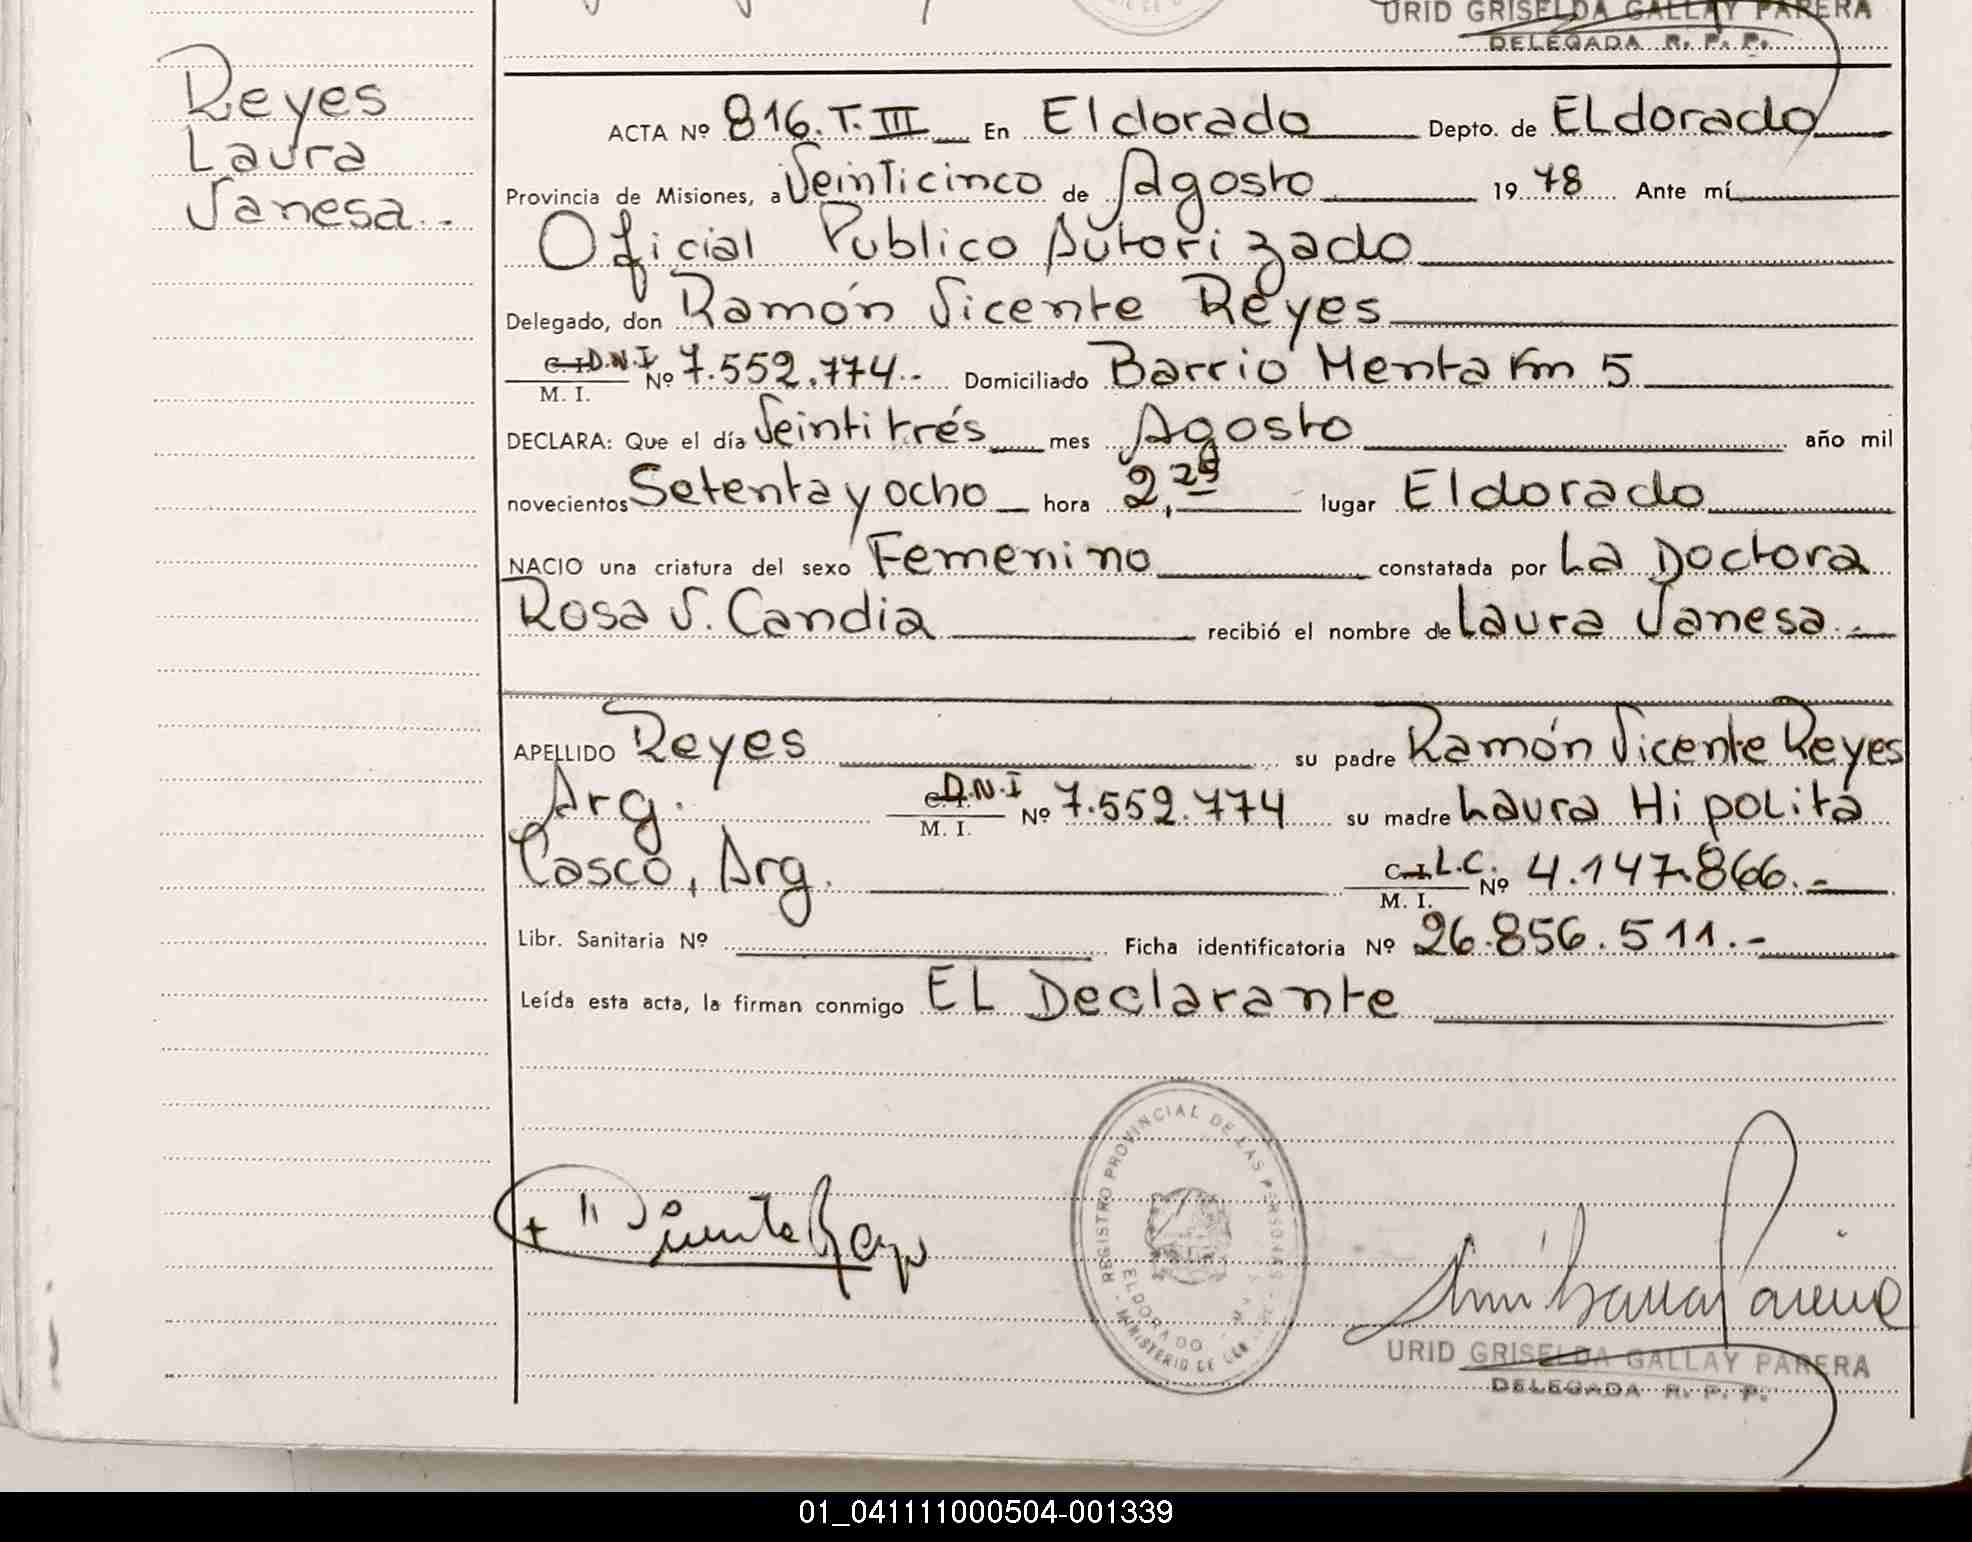 URID GRISELDA GALLAY PARERA
DELEGADA R. P. P.
Reyes
Laura
Vanesa..
ACTA Nº 816.T.III En Eldorado Depto. de ELdorado
Provincia de Misiones, a Veinticinco de Agosto 1978 Ante mí
Oficial Publico Autorizado
Delegado, don Ramón Vicente Reyes
C.I. D.N.I Nº 7.552.774.- Domiciliado Barrio Menta Km 5
M. I.
DECLARA: Que el día Veintitrés mes Agosto año mil
novecientos Setenta y ocho hora 2,25 lugar Eldorado
NACIO una criatura del sexo Femenino constatada por La Doctora
Rosa V. Candia recibió el nombre de Laura Vanesa.-
APELLIDO Reyes su padre Ramón Vicente Reyes
Arg. C.I. D.N.I Nº 7.552.774 su madre Laura Hipolita
M. I.
Casco, Arg. C.I. L.C. Nº 4.147.866.-
M. I.
Libr. Sanitaria Nº Ficha identificatoria Nº 26.856.511.-
Leída esta acta, la firman conmigo EL Declarante
REGISTRO PROVINCIAL DE LAS PERSONAS
ELDORADO
MINISTERIO DE
URID GRISELDA GALLAY PARERA
DELEGADA R. P. P.
01_041111000504-001339